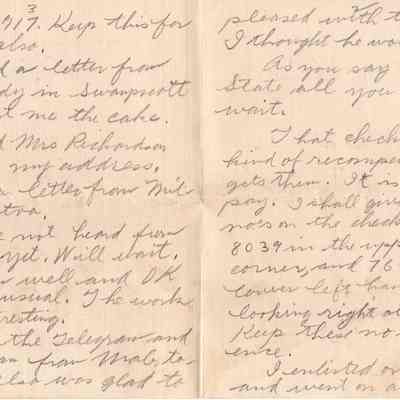 3
917. Keep this for
also.
d a letter from
dy in Swampscott
t me the cake.
d Mrs Richardson
my address.
a letter from Mil
tra.
e not heard from
yet. Will wait.
well and OK
usual. The work
resting.
the Telegram and
from
also was glad to
pleased with t
I thought he wou
As you say
State all you
wait.
That check
kind of recompe
gets them. It is
pay. I shall give
nos on the check
8039 in the upp
corner, and 76
lower left han
looking right at
Keep these no
ence.
I enlisted on
and went on a